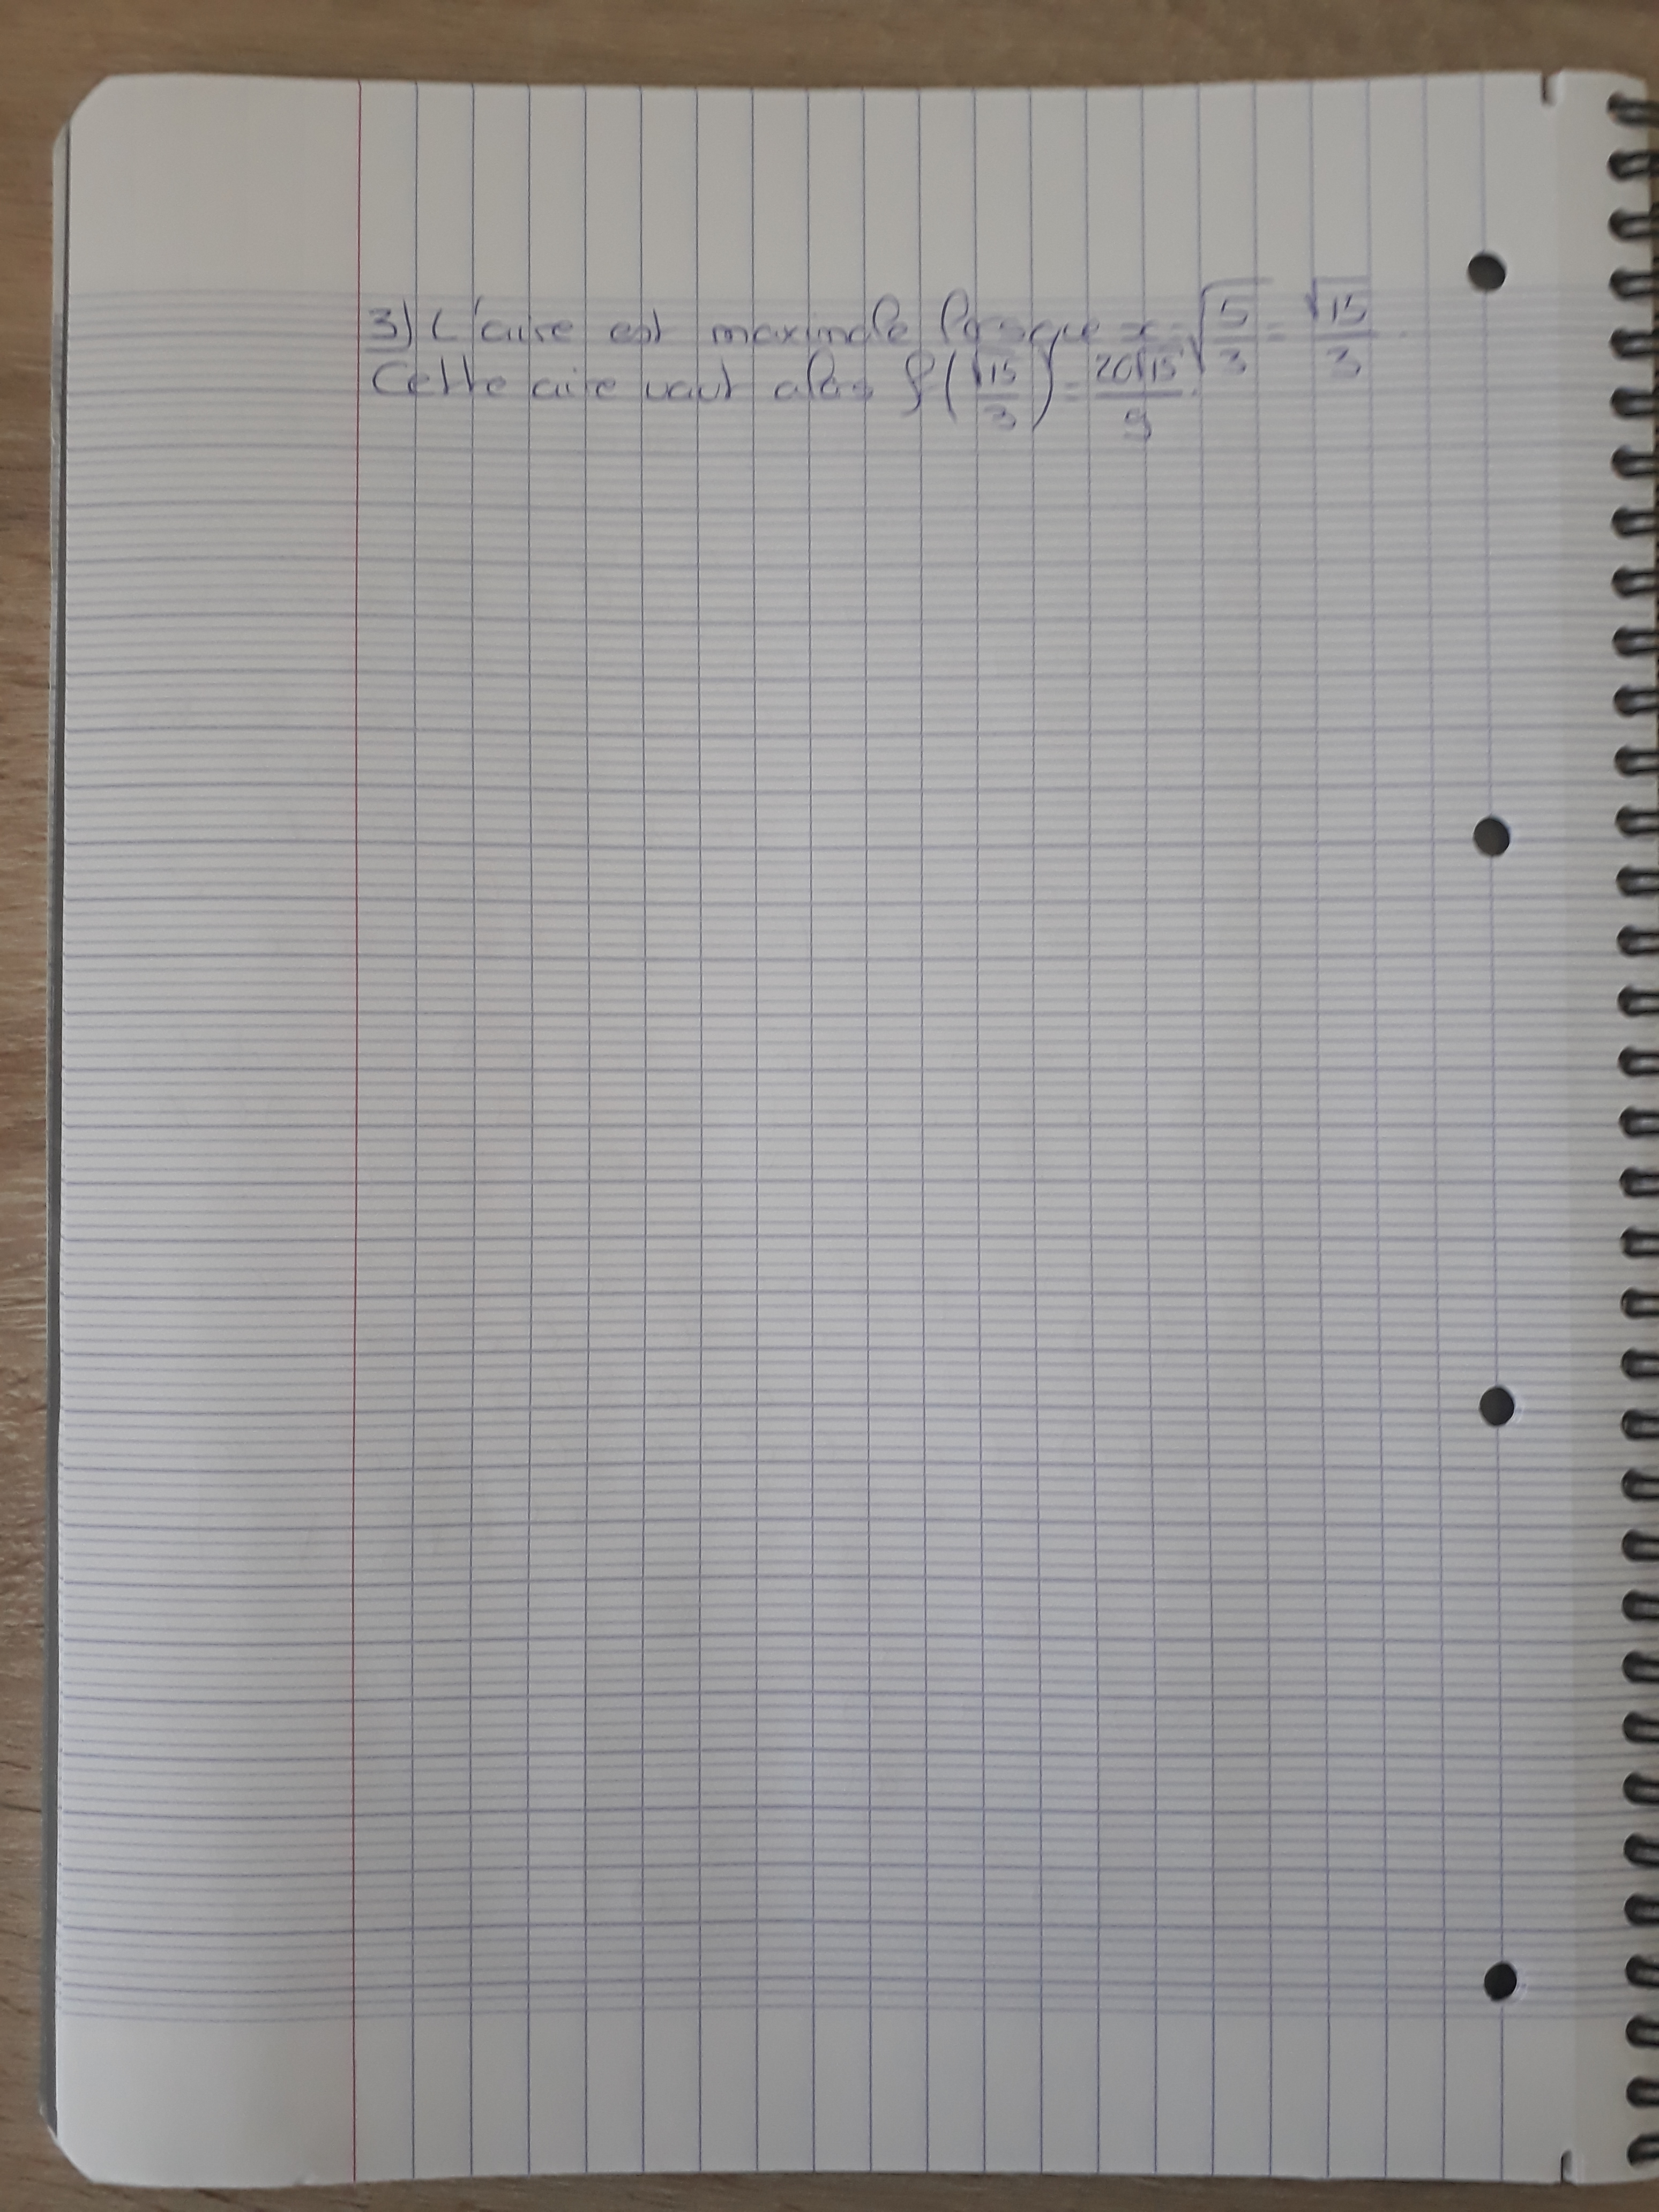 3) L'aire est maximale lorsque x = √(5/3) = √15/3.
Cette aire vaut alors f(√15/3) = 20√15/9.